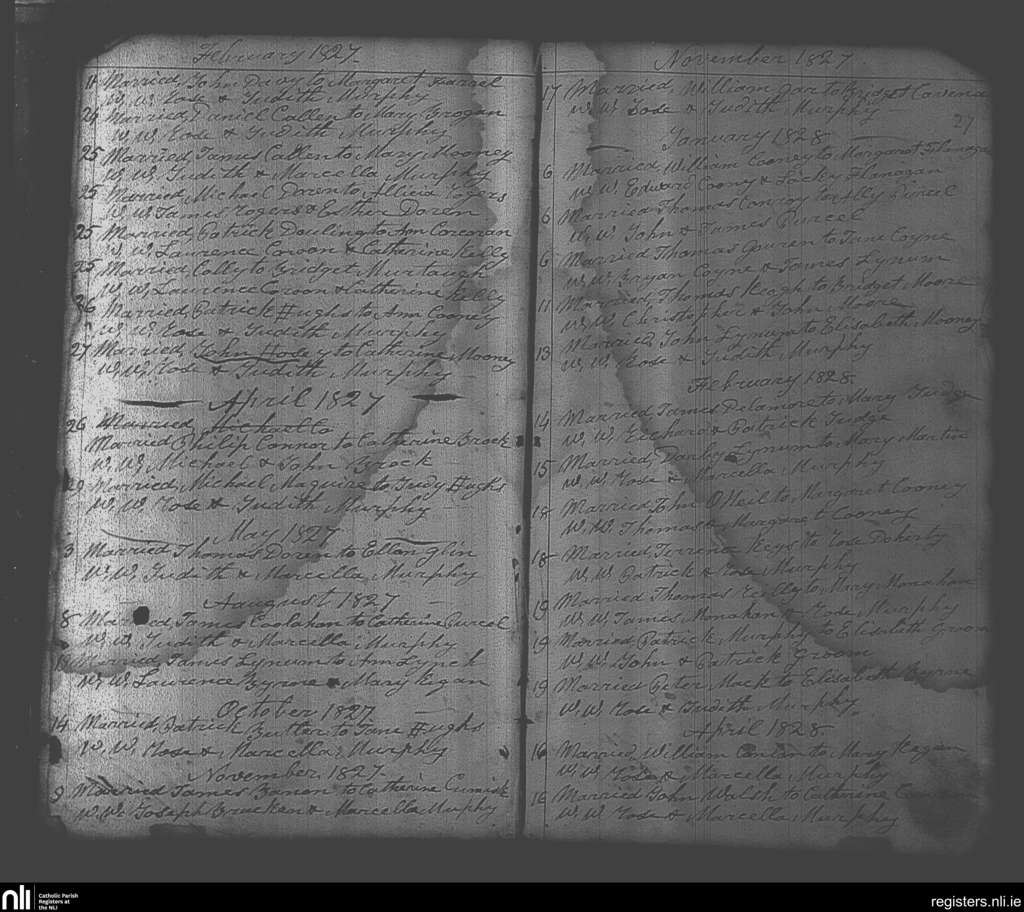 February 1827
11 Married, John Deay to Margaret Farrel
W. W. Rose & Judith Murphy
24 Married, Daniel Callen to Mary Brogan
W. W. Rose & Judith Murphy
25 Married, James Callen to Mary Mooney
W. W. Judith & Marcella Murphy
25 Married, Michael Doren to Allicia Rogers
W. W. James Rogers & Esther Doren
25 Married, Patrick Douling to Ann Corcoran
W. W. Laurence Coroon & Catherine Kelly
25 Married Colly to Bridget Murtaugh
W. W. Laurence Coroon & Catherine Kelly
26 Married Patrick Hughs to Ann Cooney
W. W. Rose & Judith Murphy
27 Married, John to Catherine Mooney
W. W. Rose & Judith Murphy
April 1827
26 Married Michael Co
Married Philip Connor to Catherine Brock
W. W. Michael & John Brock
29 Married, Michael Maguire to Judy Hughs
W. W. Rose & Judith Murphy
May 1827
3 Married Thomas Doren to Ellen Glin
W. W. Judith & Marcella Murphy
Aaugust 1827
8 Married James Coolahan to Catherine Purcel
W. W. Judith & Marcella Murphy
Married, James Lynum to Ann Lynch
W. W. Laurence Byrne & Mary Kegan
October 1827
14 Married, Patrick Butler to Jane Hughs
W. W. Rose & Marcella Murphy
November 1827
9 Married James to Catherine
W. W. Joseph Bracken & Marcella Murphy
November 1827
27
17 Married, William Jar to Bridget
W. W. Rose & Judith Murphy
January 1828
6 Married William Cooney to Margaret Flanagan
W. W. Edward Coony & Flanagan
6 Married Thomas Conroy to Ally Purcel
W. W. John & James Purcel
6 Married Thomas to Jane Coyne
W. W. Bryan Coyne & James Lynum
11 Married, Thomas Keagh to Bridget Moore
W. W. Christopher & John Moore
13 Married, John Lynum to Elisabeth Mooney
W. W. Rose & Judith Murphy
February 1828
14 Married James Delamore to Mary Judge
W. W. Richard & Patrick Judge
15 Married, Darby Lynum to Mary Martin
W. W. Rose & Marcella Murphy
18 Married John O'Neil to Margaret Cooney
W. W. Thomas & Margaret Cooney
18 Married Terrence Keys to Rose Doherty
W. W. Patrick & Rose Murphy
19 Married Thomas Reilly to Mary Monahan
W. W. James Monahan & Rose Murphy
19 Married Patrick Murphy to Elisabeth Groom
W. W. John & Patrick Groom
19 Married Peter Mack to Elisabeth Byrne
W. W. Rose & Judith Murphy
April 1828
16 Married, William Conlan to Mary Kegan
W. W. Rose & Marcella Murphy
16 Married John Walsh to Catherine
W. W. Rose & Marcella Murphy
nli
Catholic Parish
Registers at
the NLI
registers.nli.ie